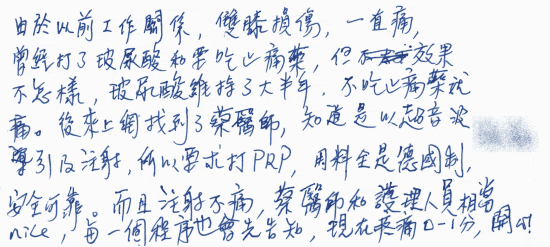 由於以前工作關係，雙膝損傷，一直痛，
曾經打了玻尿酸和要吃止痛藥，但效果
不怎樣，玻尿酸維持了大半年，不吃止痛藥就
痛。後來上網找到了蔡醫師，知道是以超音波
導引及注射，所以要求打PRP，用料全是德國制，
安全可靠。而且注射不痛，蔡醫師和護理人員相當
nice，每一個程序也會先告知，現在疼痛0-1分，開心!